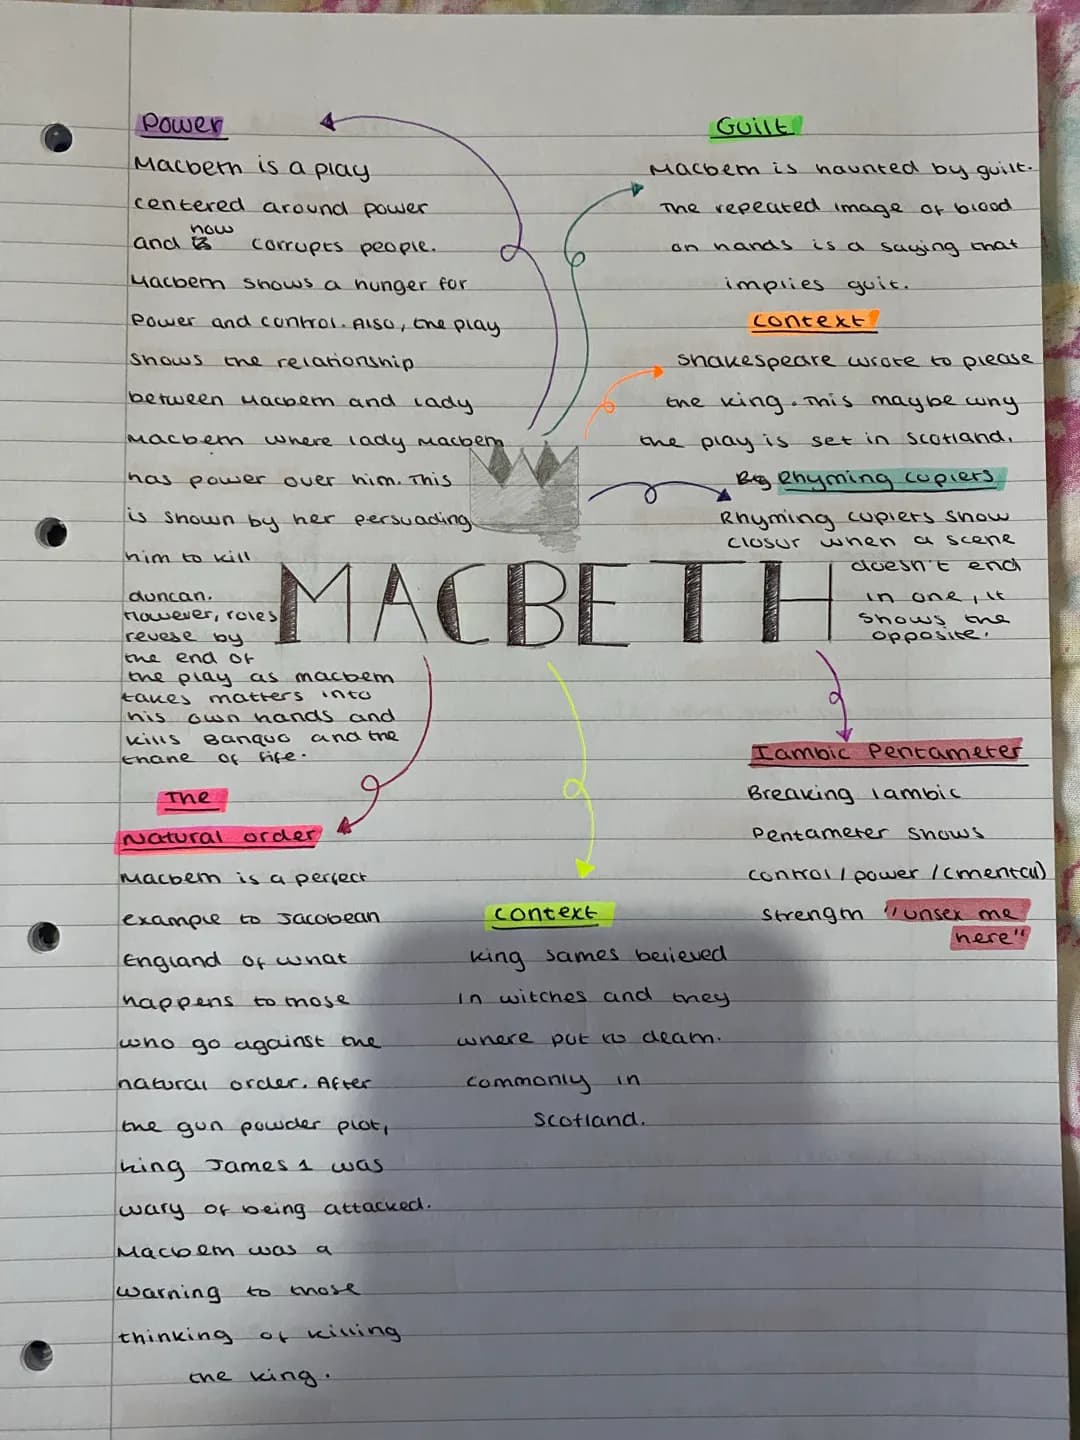 Power
Macbeth is a play
centered around power
and how corrupts people.
Macbeth shows a hunger for
power and control. Also, the play
shows the relationship
between Macbeth and Lady
Macbeth where lady Macbeth
has power over him. This
is shown by her persuading
him to kill
duncan.
However, roles
revese by
the end of
the play as macbeth
takes matters into
his own hands and
kills Banquo and the
thane of fife.
The
Natural order
Macbeth is a perfect
example to Jacobean
England of what
happens to those
who go against the
natural order. After
the gun powder plot,
king James 1 was
wary of being attacked.
Macbeth was a
warning to those
thinking of killing
the king.
MACBETH
Context
king James believed
in witches and they
where put to death.
commonly in
Scotland.
Guilt
Macbeth is haunted by guilt.
The repeated image of blood
on hands is a saying that
implies guilt.
Context
Shakespeare wrote to please
the king. This maybe why
the play is set in Scotland.
Rhyming cupiers
Rhyming cupiers show
closur when a scene
doesn't end
in one, it
shows the
opposite.
Iambic Pentameter
Breaking iambic
Pentameter shows
control / power / (mental)
strength "unsex me
here"